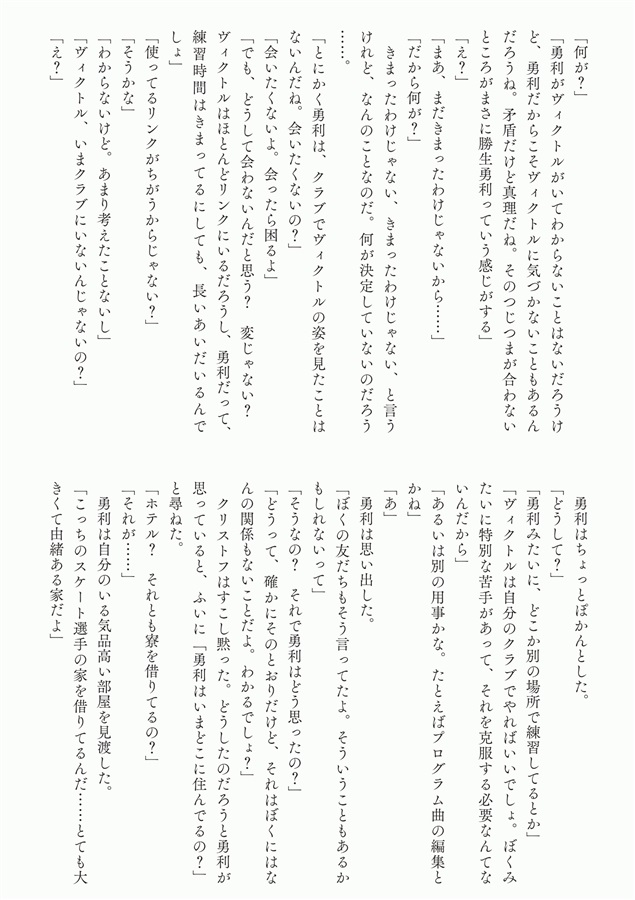 「何が？」
「勇利がヴィクトルがいてわからないことはないだろうけ
ど、勇利だからこそヴィクトルに気づかないこともあるん
だろうね。矛盾だけど真理だね。そのつじつまが合わない
ところがまさに勝生勇利っていう感じがする」
「え？」
「まあ、まだきまったわけじゃないから……」
「だから何が？」
きまったわけじゃない、きまったわけじゃない、と言う
けれど、なんのことなのだ。何が決定していないのだろう
……。
「とにかく勇利は、クラブでヴィクトルの姿を見たことは
ないんだね。会いたくないの？」
「会いたくないよ。会ったら困るよ」
「でも、どうして会わないんだと思う？　変じゃない？
ヴィクトルはほとんどリンクにいるだろうし、勇利だって、
練習時間はきまってるにしても、長いあいだいるんで
しょ」
「使ってるリンクがちがうからじゃない？」
「そうかな」
「わからないけど。あまり考えたことないし」
「ヴィクトル、いまクラブにいないんじゃないの？」
「え？」
勇利はちょっとぽかんとした。
「どうして？」
「勇利みたいに、どこか別の場所で練習してるとか」
「ヴィクトルは自分のクラブでやればいいでしょ。ぼくみ
たいに特別な苦手があって、それを克服する必要なんてな
いんだから」
「あるいは別の用事かな。たとえばプログラム曲の編集と
かね」
「あ」
勇利は思い出した。
「ぼくの友だちもそう言ってたよ。そういうこともあるか
もしれないって」
「そうなの？　それで勇利はどう思ったの？」
「どうって、確かにそのとおりだけど、それはぼくにはな
んの関係もないことだよ。わかるでしょ？」
クリストフはすこし黙った。どうしたのだろうと勇利が
思っていると、ふいに「勇利はいまどこに住んでるの？」
と尋ねた。
「ホテル？　それとも寮を借りてるの？」
「それが……」
勇利は自分のいる気品高い部屋を見渡した。
「こっちのスケート選手の家を借りてるんだ……とても大
きくて由緒ある家だよ」